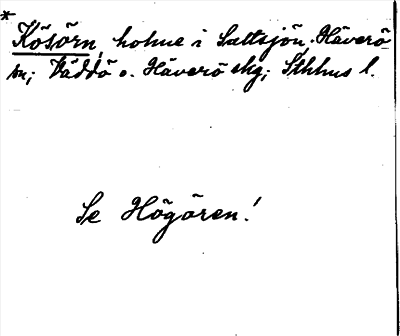 * Kösörn, holme i Saltsjön, Häverö
sn; Väddö o. Häverö skg; Sthlms l.
Se Högören!